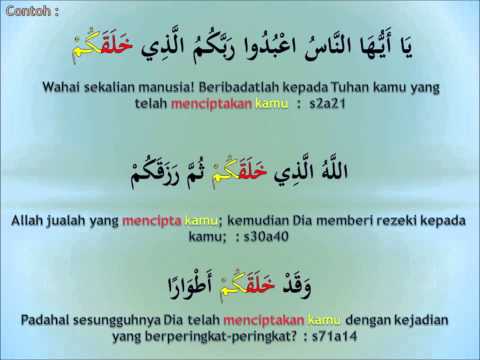 Contoh :
يَا أَيُّهَا النَّاسُ اعْبُدُوا رَبَّكُمُ الَّذِي خَلَقَكُمْ
Wahai sekalian manusia! Beribadatlah kepada Tuhan kamu yang
telah menciptakan kamu : s2a21
اللَّهُ الَّذِي خَلَقَكُمْ ثُمَّ رَزَقَكُمْ
Allah jualah yang mencipta kamu; kemudian Dia memberi rezeki kepada
kamu; : s30a40
وَقَدْ خَلَقَكُمْ أَطْوَارًا
Padahal sesungguhnya Dia telah menciptakan kamu dengan kejadian
yang berperingkat-peringkat? : s71a14